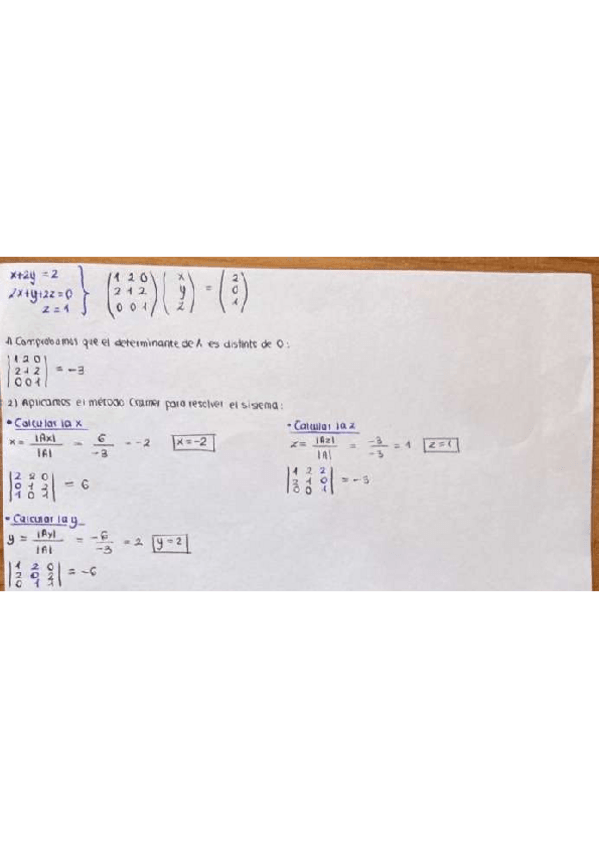 x+2y = 2
2x+y+2z=0
z=1
(1 2 0 / 2 1 2 / 0 0 1) (x / y / z) = (2 / 0 / 1)
1) Comprobamos que el determinante de A es distinto de 0:
|1 2 0 / 2 1 2 / 0 0 1| = -3
2) Aplicamos el método Cramer para resolver el sistema:
• Calcular la x
x = |Ax| / |A| = 6 / -3 = -2 x=-2
|2 2 0 / 0 1 2 / 1 0 1| = 6
• Calcular la y
y = |Ay| / |A| = -6 / -3 = 2 y=2
|1 2 0 / 2 0 2 / 0 1 1| = -6
• Calcular la z
z = |Az| / |A| = -3 / -3 = 1 z=1
|1 2 2 / 2 1 0 / 0 0 1| = -3